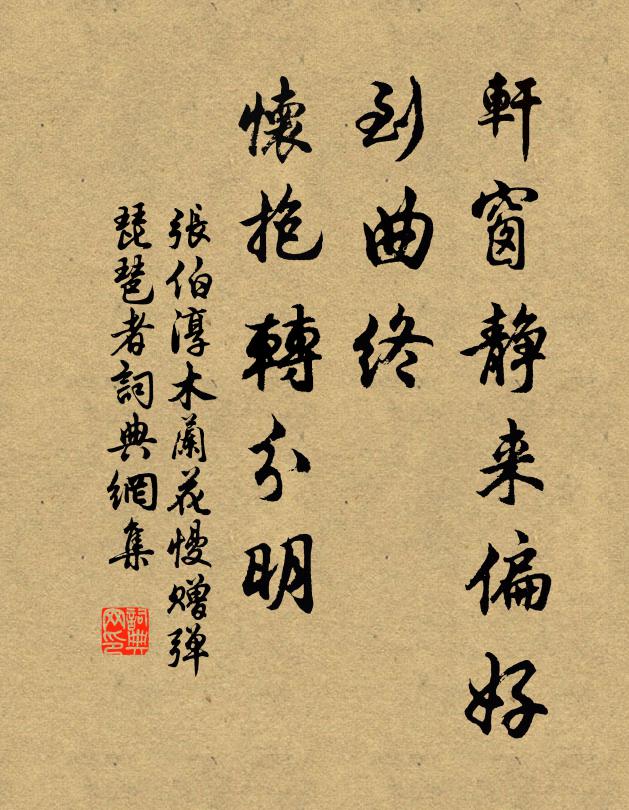 軒窗静来偏好
到曲終
懷抱轉分明
張伯淳木蘭花慢赠弹
琵琶者詞典網集
詞典网印